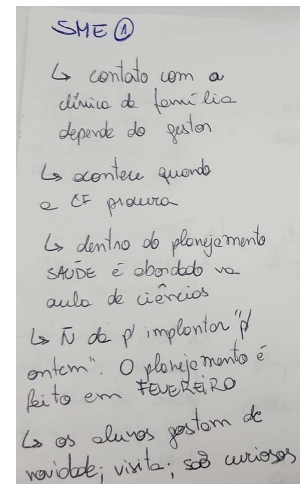 SME ①
↳ contato com a
clínica da família
depende do gestor
↳ acontece quando
a CF procura
↳ dentro do planejamento
SAÚDE é abordado na
aula de ciências
↳ Ñ dá p/ implantar "p/
ontem". O planejamento é
feito em FEVEREIRO
↳ os alunos gostam de
novidade; visita; são curiosos